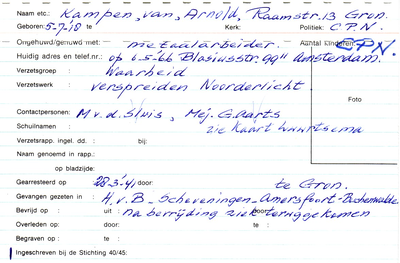 Naam etc.: Kampen, van, Arnold, Raamstr. 13 Gron.
Geboren: 5-7-18 te : Kerk: Politiek: C.P.N.
Ongehuwd/gehuwd met : metaalarbeider. Aantal kinderen: C.P.N.
Huidig adres en telef.nr.: op 6-5-66 Blasiusstr. 99" Amsterdam.
Verzetsgroep : Waarheid
Verzetswerk : verspreiden Noorderlicht
Foto
Contactpersonen: M v.d. Sluis, Mej. G. Aarts
Schuilnaam : zie kaart Wuurtsema
Verzetsrapp. ingel. dd. : bij:
Naam genoemd in rapp.:
op bladzijde:
Gearresteerd op : 28-3-41 door: te Gron.
Gevangen gezeten in : H.v.B - Scheveningen - Amersfoort - Buchenwalde
Bevrijd op : uit : door:
na bevrijding ziek teruggekomen
Overleden op: door: te :
Begraven op : te :
Ingeschreven bij de Stichting 40/45: